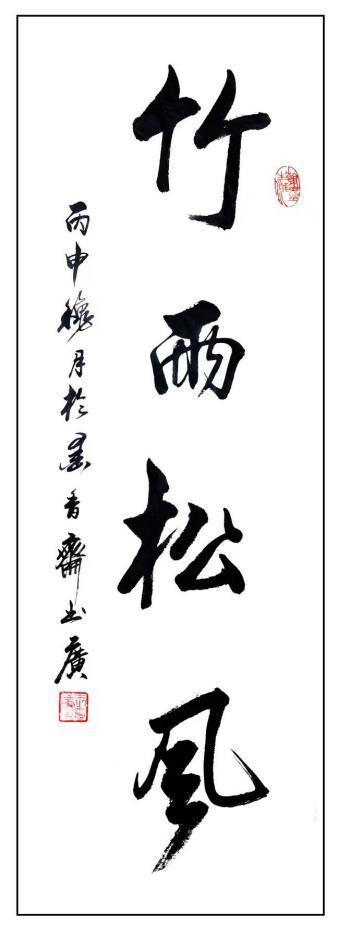 竹雨松風
丙申穐月於墨香齋士廣